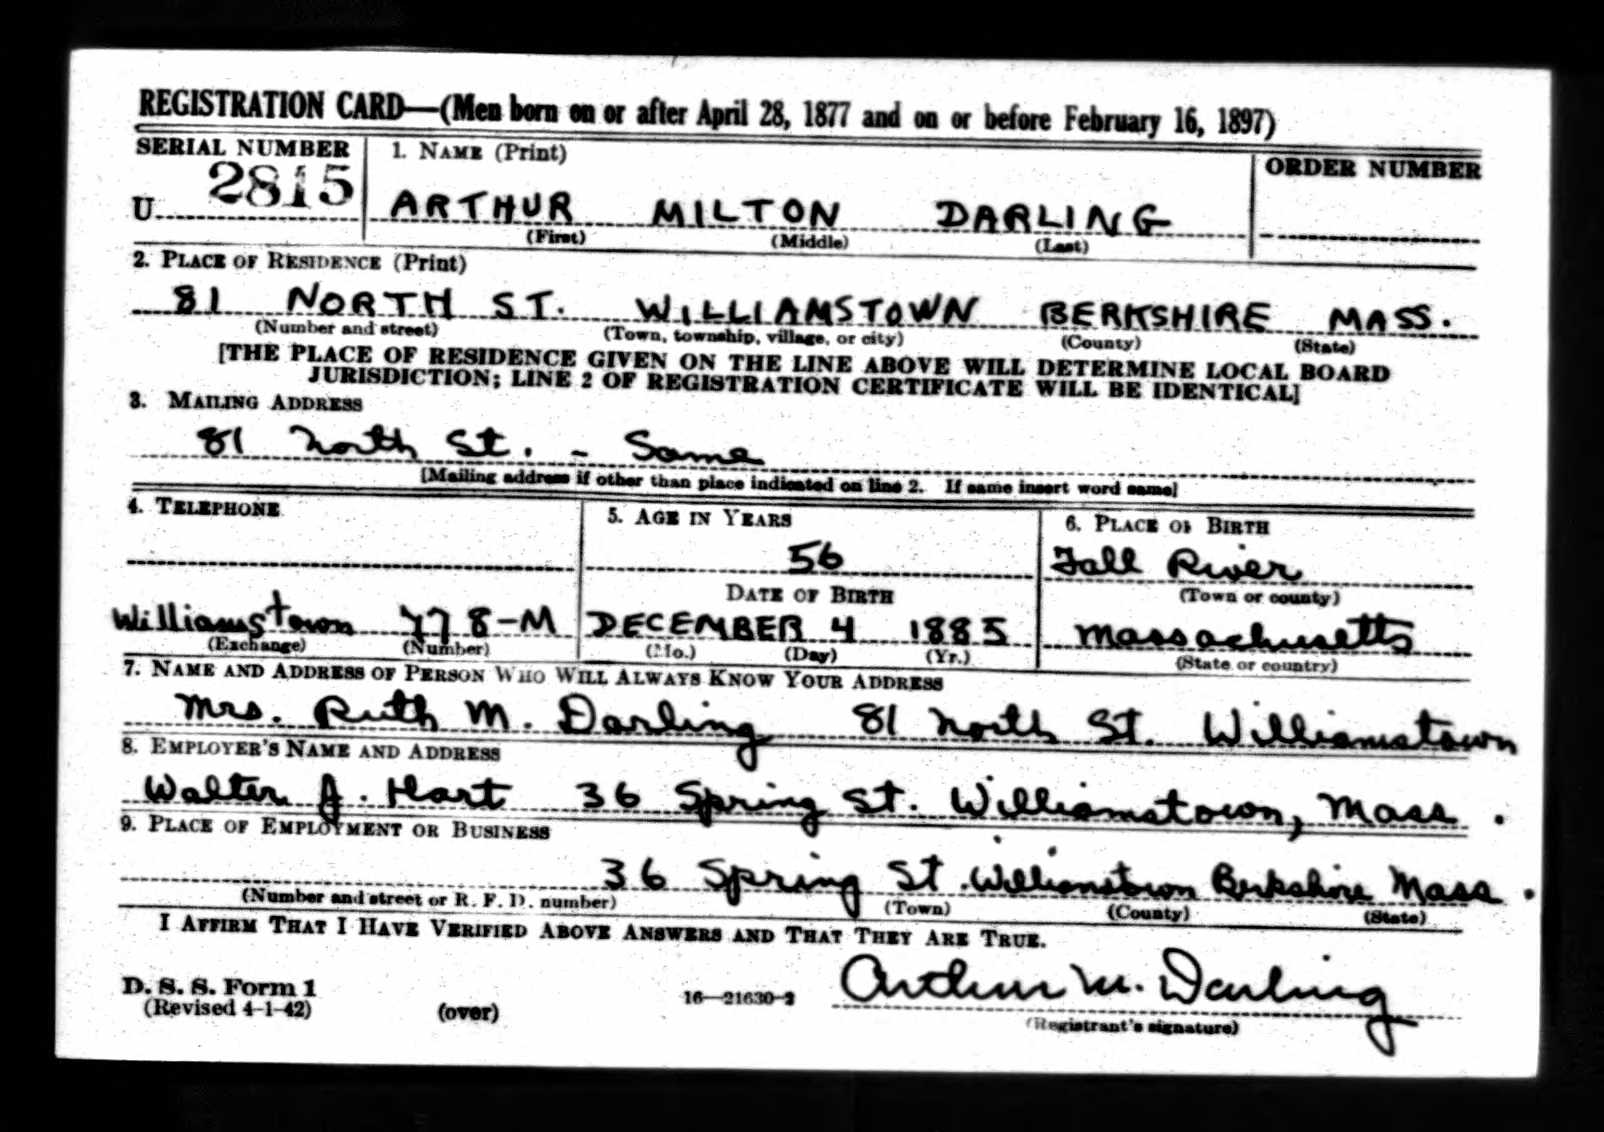 REGISTRATION CARD—(Men born on or after April 28, 1877 and on or before February 16, 1897)
SERIAL NUMBER 1. NAME (Print) ORDER NUMBER
U 2815 ARTHUR MILTON DARLING
(First) (Middle) (Last)
2. PLACE OF RESIDENCE (Print)
81 NORTH ST. WILLIAMSTOWN BERKSHIRE MASS.
(Number and street) (Town, township, village, or city) (County) (State)
[THE PLACE OF RESIDENCE GIVEN ON THE LINE ABOVE WILL DETERMINE LOCAL BOARD
JURISDICTION; LINE 2 OF REGISTRATION CERTIFICATE WILL BE IDENTICAL]
3. MAILING ADDRESS
81 North St. - Same
[Mailing address if other than place indicated on line 2. If same insert word same]
4. TELEPHONE 5. AGE IN YEARS 6. PLACE OF BIRTH
56 Fall River
DATE OF BIRTH (Town or county)
Williamstown 778-M DECEMBER 4 1885 Massachusetts
(Exchange) (Number) (Mo.) (Day) (Yr.) (State or country)
7. NAME AND ADDRESS OF PERSON WHO WILL ALWAYS KNOW YOUR ADDRESS
Mrs. Ruth M. Darling 81 North St. Williamstown
8. EMPLOYER'S NAME AND ADDRESS
Walter J. Hart 36 Spring St. Williamstown, Mass.
9. PLACE OF EMPLOYMENT OR BUSINESS
36 Spring St. Williamstown Berkshire Mass.
(Number and street or R. F. D. number) (Town) (County) (State)
I AFFIRM THAT I HAVE VERIFIED ABOVE ANSWERS AND THAT THEY ARE TRUE.
D. S. S. Form 1
(Revised 4-1-42) (over) 16—21630-2 Arthur M. Darling
(Registrant's signature)